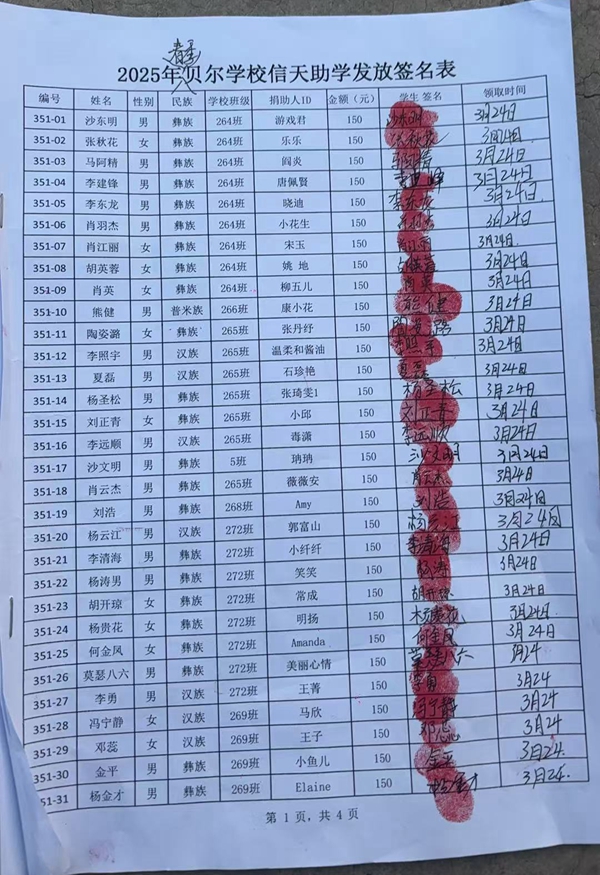 春季
2025年贝尔学校信天助学发放签名表
编号 姓名 性别 民族 学校班级 捐助人ID 金额（元） 学生 签名 领取时间
351-01 沙东明 男 彝族 264班 游戏君 150 沙东明 3月24日
351-02 张秋花 女 彝族 264班 乐乐 150 张秋花 3月24日
351-03 马阿精 男 彝族 264班 阎炎 150 3月24日
351-04 李建锋 男 彝族 264班 唐佩賢 150 3月24日
351-05 李东龙 男 彝族 264班 晓迪 150 李东龙 3月24日
351-06 肖羽杰 男 彝族 264班 小花生 150 3月24日
351-07 肖江丽 女 彝族 264班 宋玉 150 3月24日
351-08 胡英蓉 女 彝族 264班 姚 地 150 3月24日
351-09 肖英 女 彝族 264班 柳五儿 150 肖英 3月24日
351-10 熊健 男 普米族 266班 康小花 150 熊健 3月24日
351-11 陶姿潞 女 彝族 265班 张丹纾 150 3月24日
351-12 李照宇 男 汉族 265班 温柔和酱油 150 3月24日
351-13 夏磊 男 汉族 265班 石珍艳 150 夏磊 3月24日
351-14 杨圣松 男 彝族 265班 张琦雯1 150 杨圣松 3月24日
351-15 刘正青 女 彝族 265班 小邱 150 刘正青 3月24日
351-16 李远顺 男 汉族 265班 毒潇 150 李远顺 3月24日
351-17 沙文明 男 彝族 5班 玥玥 150 沙文明 3月24日
351-18 肖云杰 男 彝族 265班 薇薇安 150 肖云杰 3月24
351-19 刘浩 男 彝族 268班 Amy 150 刘浩 3月24日
351-20 杨云江 男 汉族 272班 郭富山 150 杨云江 3月24日
351-21 李清海 男 彝族 272班 小纤纤 150 李清海 3月24日
351-22 杨涛男 男 彝族 272班 笑笑 150 3月24日
351-23 胡开琼 女 彝族 272班 常成 150 胡开琼 3月24日
351-24 杨贵花 女 彝族 272班 明扬 150 杨贵花 3月24日
351-25 何金凤 女 彝族 272班 Amanda 150 何金凤 3月24日
351-26 莫瑟八六 男 彝族 272班 美丽心情 150 3月24
351-27 李勇 男 汉族 272班 王菁 150 李勇 3月24
351-28 冯宁静 女 汉族 269班 马欣 150 冯宁静 3月24
351-29 邓蕊 女 汉族 269班 王子 150 邓蕊 3月24
351-30 金平 男 彝族 269班 小鱼儿 150 金平 3月24.
351-31 杨金才 男 彝族 269班 Elaine 150 杨金才 3月24.
第 1 页，共 4 页